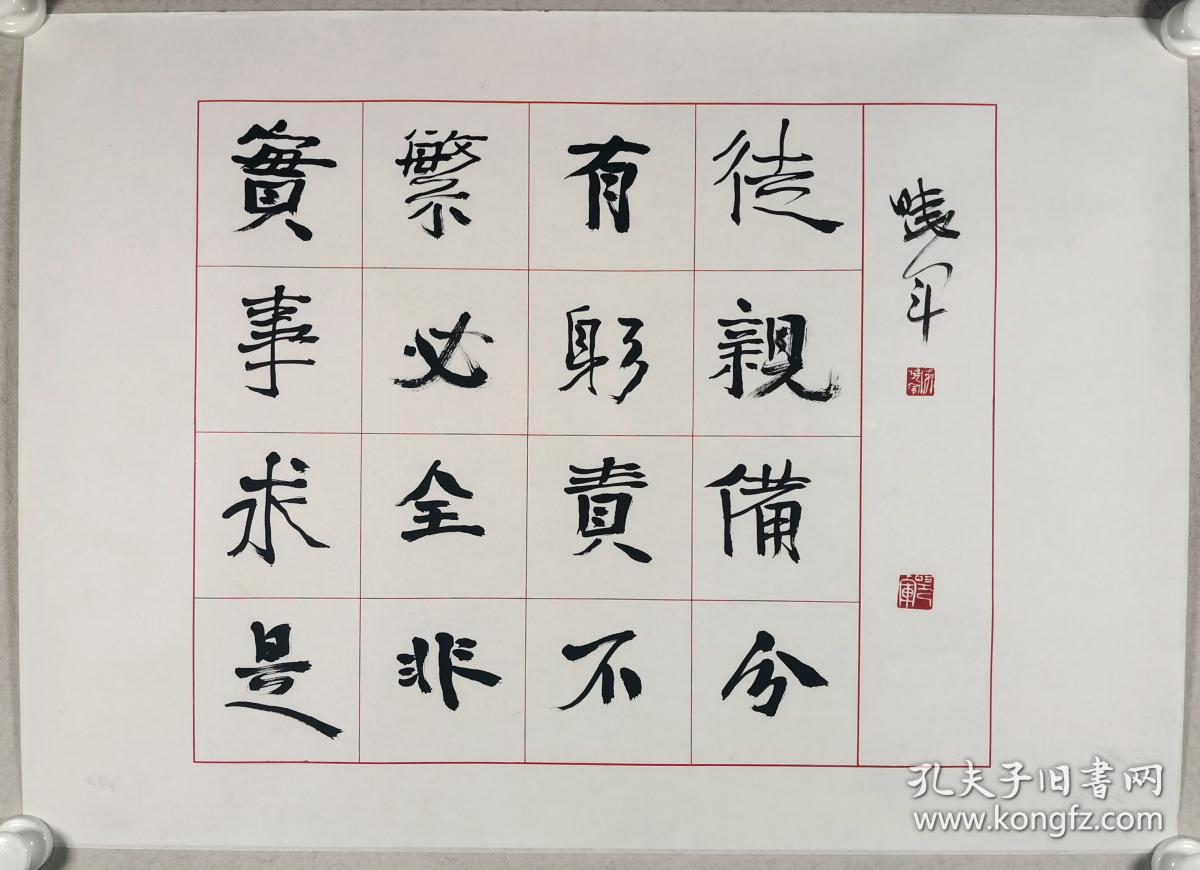 實繁有徒
事必躬親
求全責備
是非不分
孔夫子旧书网
www.kongfz.com